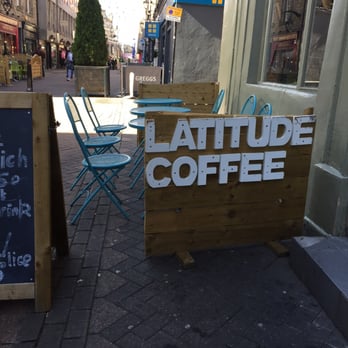 GREGGS
LATITUDE
COFFEE
ich
rink
lice